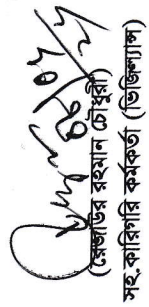 (রেজাউর রহমান চৌধুরী)
সহ. কারিগরি কর্মকর্তা (ভিজিল্যান্স)